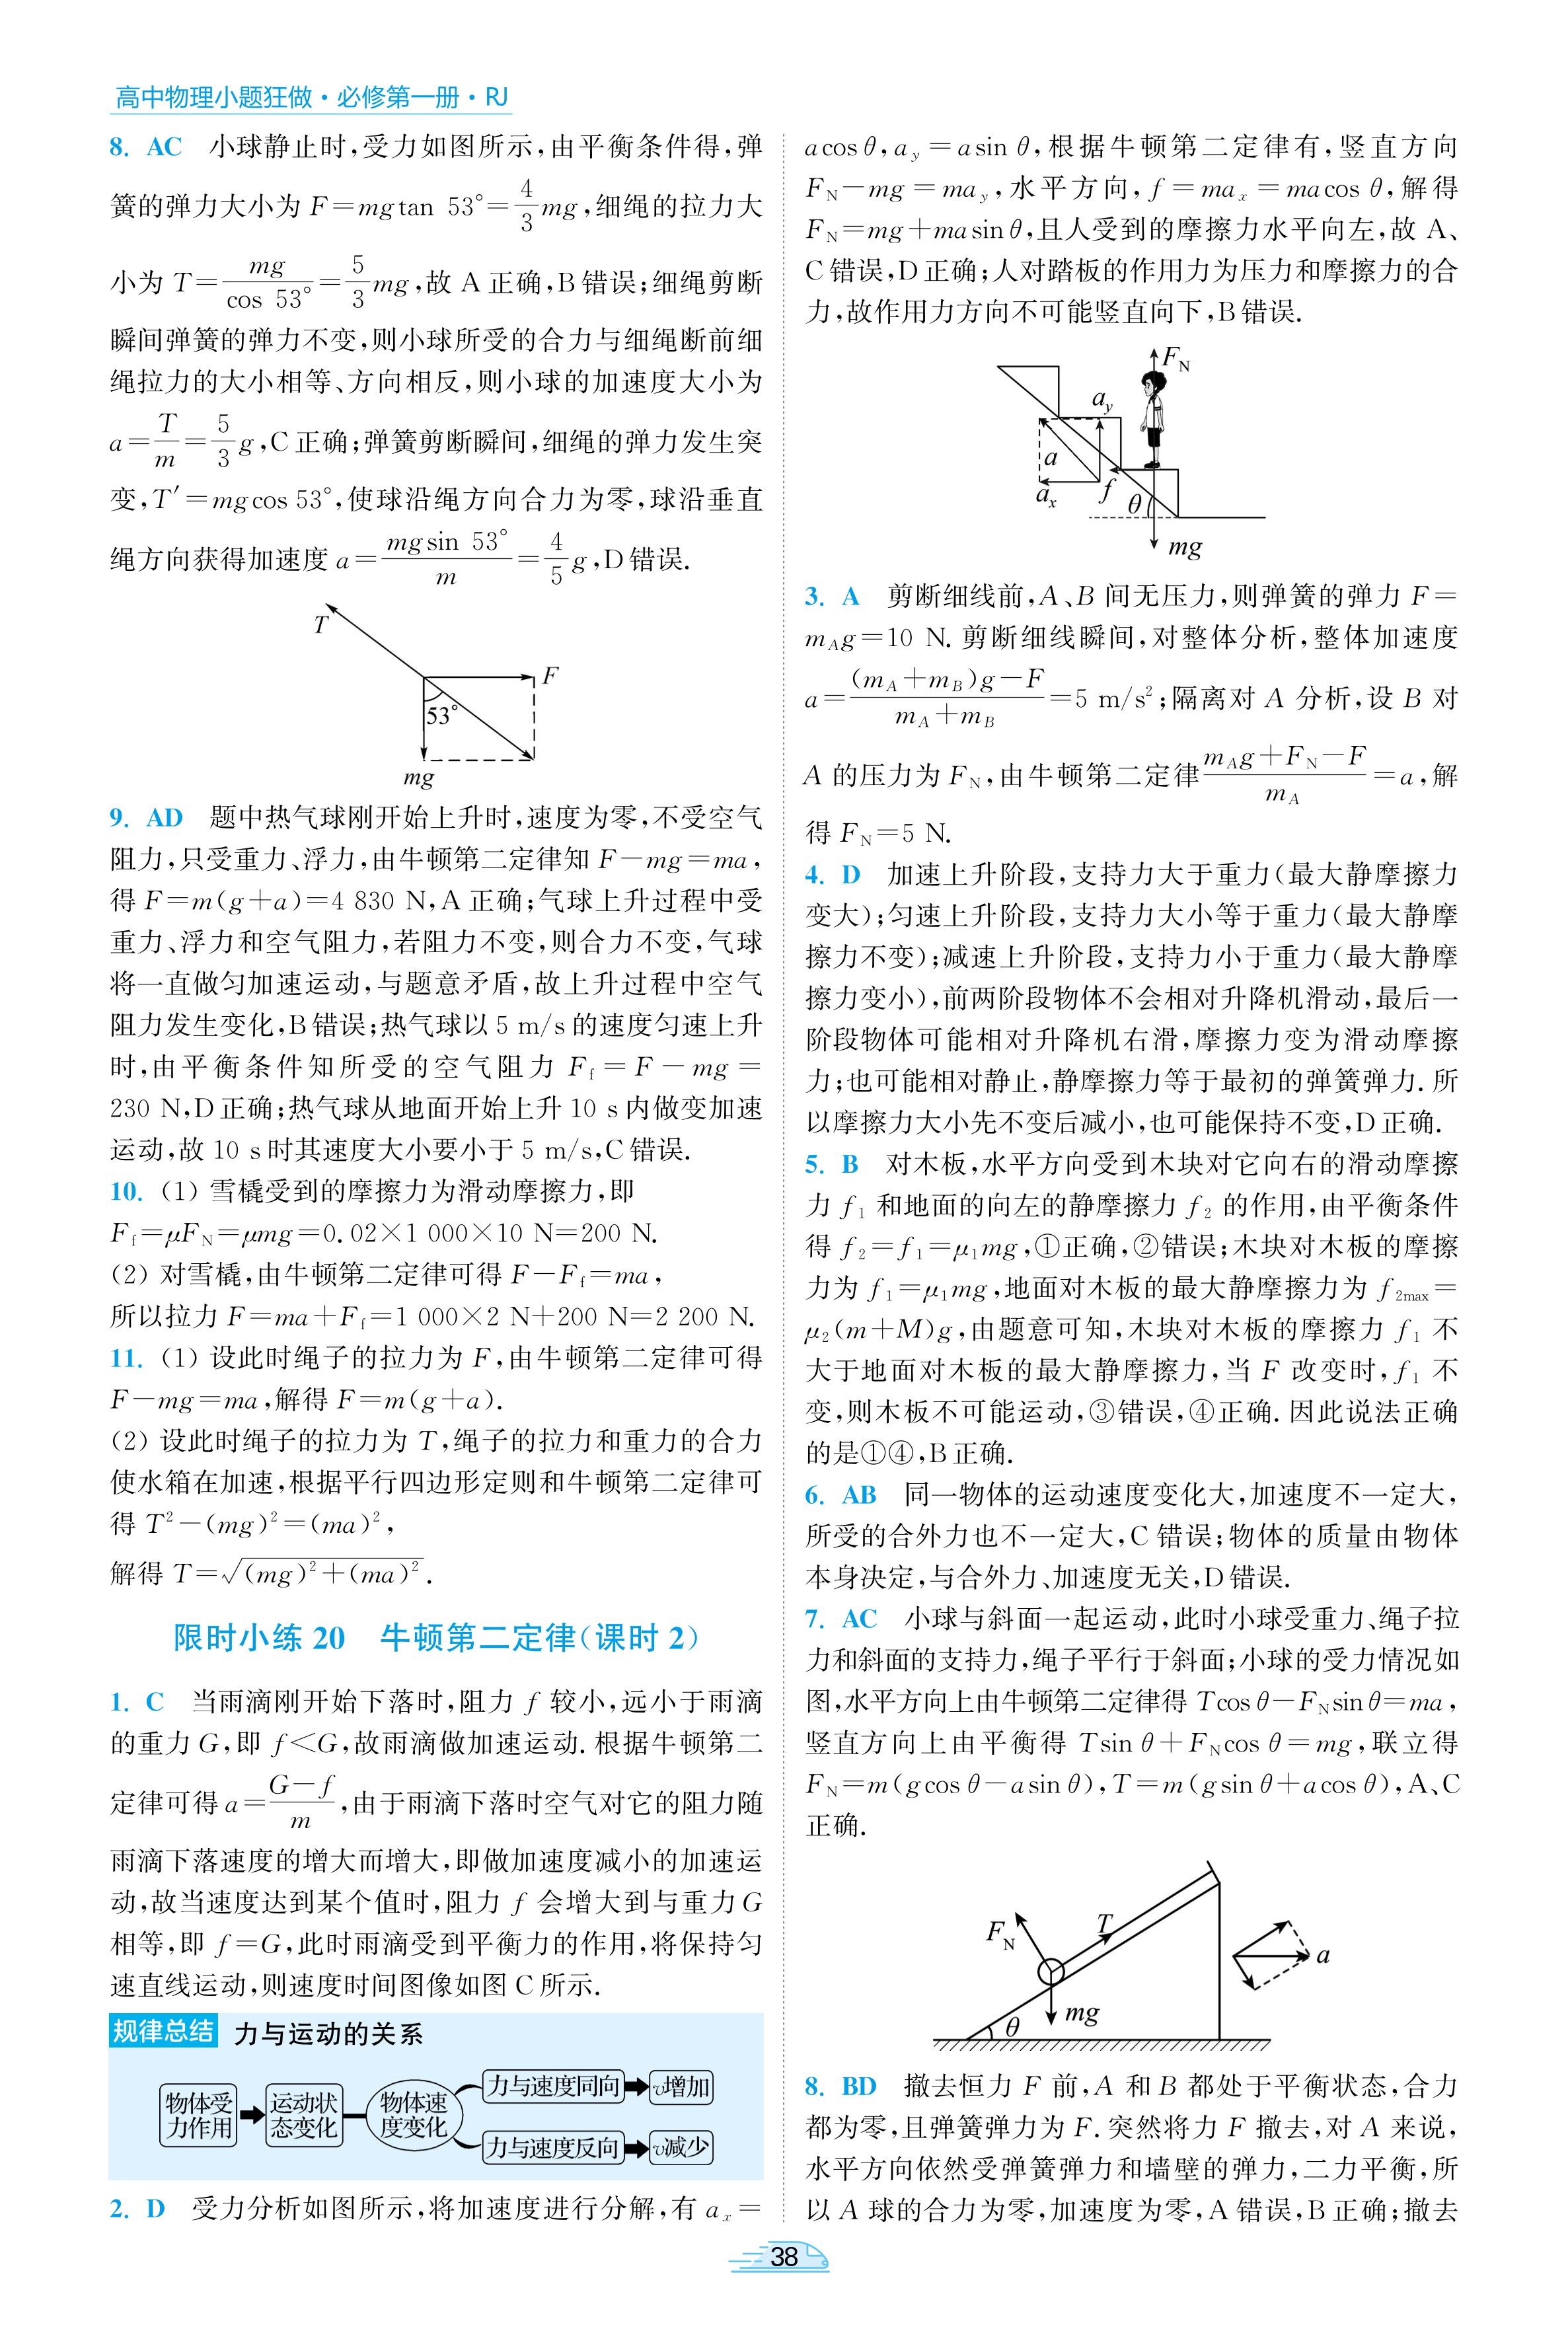 高中物理小题狂做·必修第一册·RJ
8. AC 小球静止时,受力如图所示,由平衡条件得,弹
簧的弹力大小为 F=mgtan 53°=4/3 mg,细绳的拉力大
小为 T=mg/cos 53°=5/3 mg,故 A 正确,B 错误;细绳剪断
瞬间弹簧的弹力不变,则小球所受的合力与细绳断前细
绳拉力的大小相等、方向相反,则小球的加速度大小为
a=T/m=5/3 g,C 正确;弹簧剪断瞬间,细绳的弹力发生突
变,T′=mgcos 53°,使球沿绳方向合力为零,球沿垂直
绳方向获得加速度 a=mgsin 53°/m=4/5 g,D 错误.
T
F
53°
mg
9. AD 题中热气球刚开始上升时,速度为零,不受空气
阻力,只受重力、浮力,由牛顿第二定律知 F-mg=ma,
得 F=m(g+a)=4 830 N,A 正确;气球上升过程中受
重力、浮力和空气阻力,若阻力不变,则合力不变,气球
将一直做匀加速运动,与题意矛盾,故上升过程中空气
阻力发生变化,B 错误;热气球以 5 m/s 的速度匀速上升
时,由平衡条件知所受的空气阻力 Ff=F-mg=
230 N,D 正确;热气球从地面开始上升 10 s 内做变加速
运动,故 10 s 时其速度大小要小于 5 m/s,C 错误.
10. (1) 雪橇受到的摩擦力为滑动摩擦力,即
Ff=μFN=μmg=0.02×1 000×10 N=200 N.
(2) 对雪橇,由牛顿第二定律可得 F-Ff=ma,
所以拉力 F=ma+Ff=1 000×2 N+200 N=2 200 N.
11. (1) 设此时绳子的拉力为 F,由牛顿第二定律可得
F-mg=ma,解得 F=m(g+a).
(2) 设此时绳子的拉力为 T,绳子的拉力和重力的合力
使水箱在加速,根据平行四边形定则和牛顿第二定律可
得 T²-(mg)²=(ma)²,
解得 T=√(mg)²+(ma)².
限时小练 20 牛顿第二定律(课时 2)
1. C 当雨滴刚开始下落时,阻力 f 较小,远小于雨滴
的重力 G,即 f<G,故雨滴做加速运动.根据牛顿第二
定律可得 a=G-f/m,由于雨滴下落时空气对它的阻力随
雨滴下落速度的增大而增大,即做加速度减小的加速运
动,故当速度达到某个值时,阻力 f 会增大到与重力 G
相等,即 f=G,此时雨滴受到平衡力的作用,将保持匀
速直线运动,则速度时间图像如图 C 所示.
规律总结 力与运动的关系
物体受
力作用
运动状
态变化
物体速
度变化
力与速度同向
v增加
力与速度反向
v减少
2. D 受力分析如图所示,将加速度进行分解,有 ax=
acos θ,ay=asin θ,根据牛顿第二定律有,竖直方向
FN-mg=may,水平方向,f=max=macos θ,解得
FN=mg+masin θ,且人受到的摩擦力水平向左,故 A、
C 错误,D 正确;人对踏板的作用力为压力和摩擦力的合
力,故作用力方向不可能竖直向下,B 错误.
FN
ay
a
ax
f
θ
mg
3. A 剪断细线前,A、B 间无压力,则弹簧的弹力 F=
mAg=10 N.剪断细线瞬间,对整体分析,整体加速度
a=(mA+mB)g-F/mA+mB=5 m/s²;隔离对 A 分析,设 B 对
A 的压力为 FN,由牛顿第二定律 mAg+FN-F/mA=a,解
得 FN=5 N.
4. D 加速上升阶段,支持力大于重力(最大静摩擦力
变大);匀速上升阶段,支持力大小等于重力(最大静摩
擦力不变);减速上升阶段,支持力小于重力(最大静摩
擦力变小),前两阶段物体不会相对升降机滑动,最后一
阶段物体可能相对升降机右滑,摩擦力变为滑动摩擦
力;也可能相对静止,静摩擦力等于最初的弹簧弹力.所
以摩擦力大小先不变后减小,也可能保持不变,D 正确.
5. B 对木板,水平方向受到木块对它向右的滑动摩擦
力 f1 和地面的向左的静摩擦力 f2 的作用,由平衡条件
得 f2=f1=μ1mg,①正确,②错误;木块对木板的摩擦
力为 f1=μ1mg,地面对木板的最大静摩擦力为 f2max=
μ2(m+M)g,由题意可知,木块对木板的摩擦力 f1 不
大于地面对木板的最大静摩擦力,当 F 改变时,f1 不
变,则木板不可能运动,③错误,④正确.因此说法正确
的是①④,B 正确.
6. AB 同一物体的运动速度变化大,加速度不一定大,
所受的合外力也不一定大,C 错误;物体的质量由物体
本身决定,与合外力、加速度无关,D 错误.
7. AC 小球与斜面一起运动,此时小球受重力、绳子拉
力和斜面的支持力,绳子平行于斜面;小球的受力情况如
图,水平方向上由牛顿第二定律得 Tcos θ-FNsin θ=ma,
竖直方向上由平衡得 Tsin θ+FNcos θ=mg,联立得
FN=m(gcos θ-asin θ),T=m(gsin θ+acos θ),A、C
正确.
FN
T
a
mg
θ
8. BD 撤去恒力 F 前,A 和 B 都处于平衡状态,合力
都为零,且弹簧弹力为 F.突然将力 F 撤去,对 A 来说,
水平方向依然受弹簧弹力和墙壁的弹力,二力平衡,所
以 A 球的合力为零,加速度为零,A 错误,B 正确;撤去
38